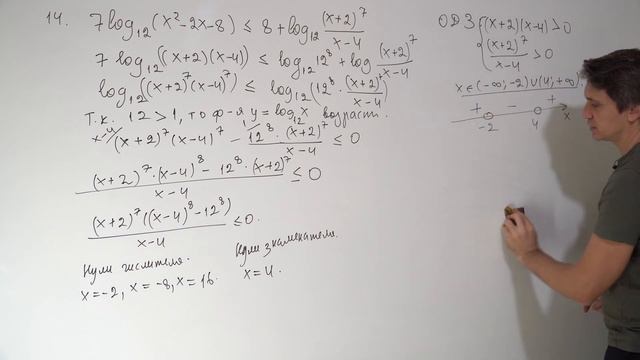 14. 7log₁₂(x²-2x-8) ≤ 8 + log₁₂ (x+2)⁷/(x-4)
7 log₁₂((x+2)(x-4)) ≤ log₁₂ 12⁸ + log (x+2)⁷/(x-4)
log₁₂((x+2)⁷(x-4)⁷) ≤ log₁₂(12⁸ · (x+2)⁷/(x-4))
Т.к. 12 > 1, то ф-я y = log₁₂ x возраст.
x-4 1
(x+2)⁷(x-4)⁷ - 12⁸ · (x+2)⁷/(x-4) ≤ 0
((x+2)⁷ · (x-4)⁸ - 12⁸ · (x+2)⁷)/(x-4) ≤ 0
((x+2)⁷((x-4)⁸ - 12⁸))/(x-4) ≤ 0.
Нули числителя.
x = -2, x = -8, x = 16.
Нули знаменателя.
x = 4.
ОДЗ { (x+2)(x-4) > 0
(x+2)⁷/(x-4) > 0
x ∈ (-∞; -2) ∪ (4; +∞)
+ - +
-2 4 x